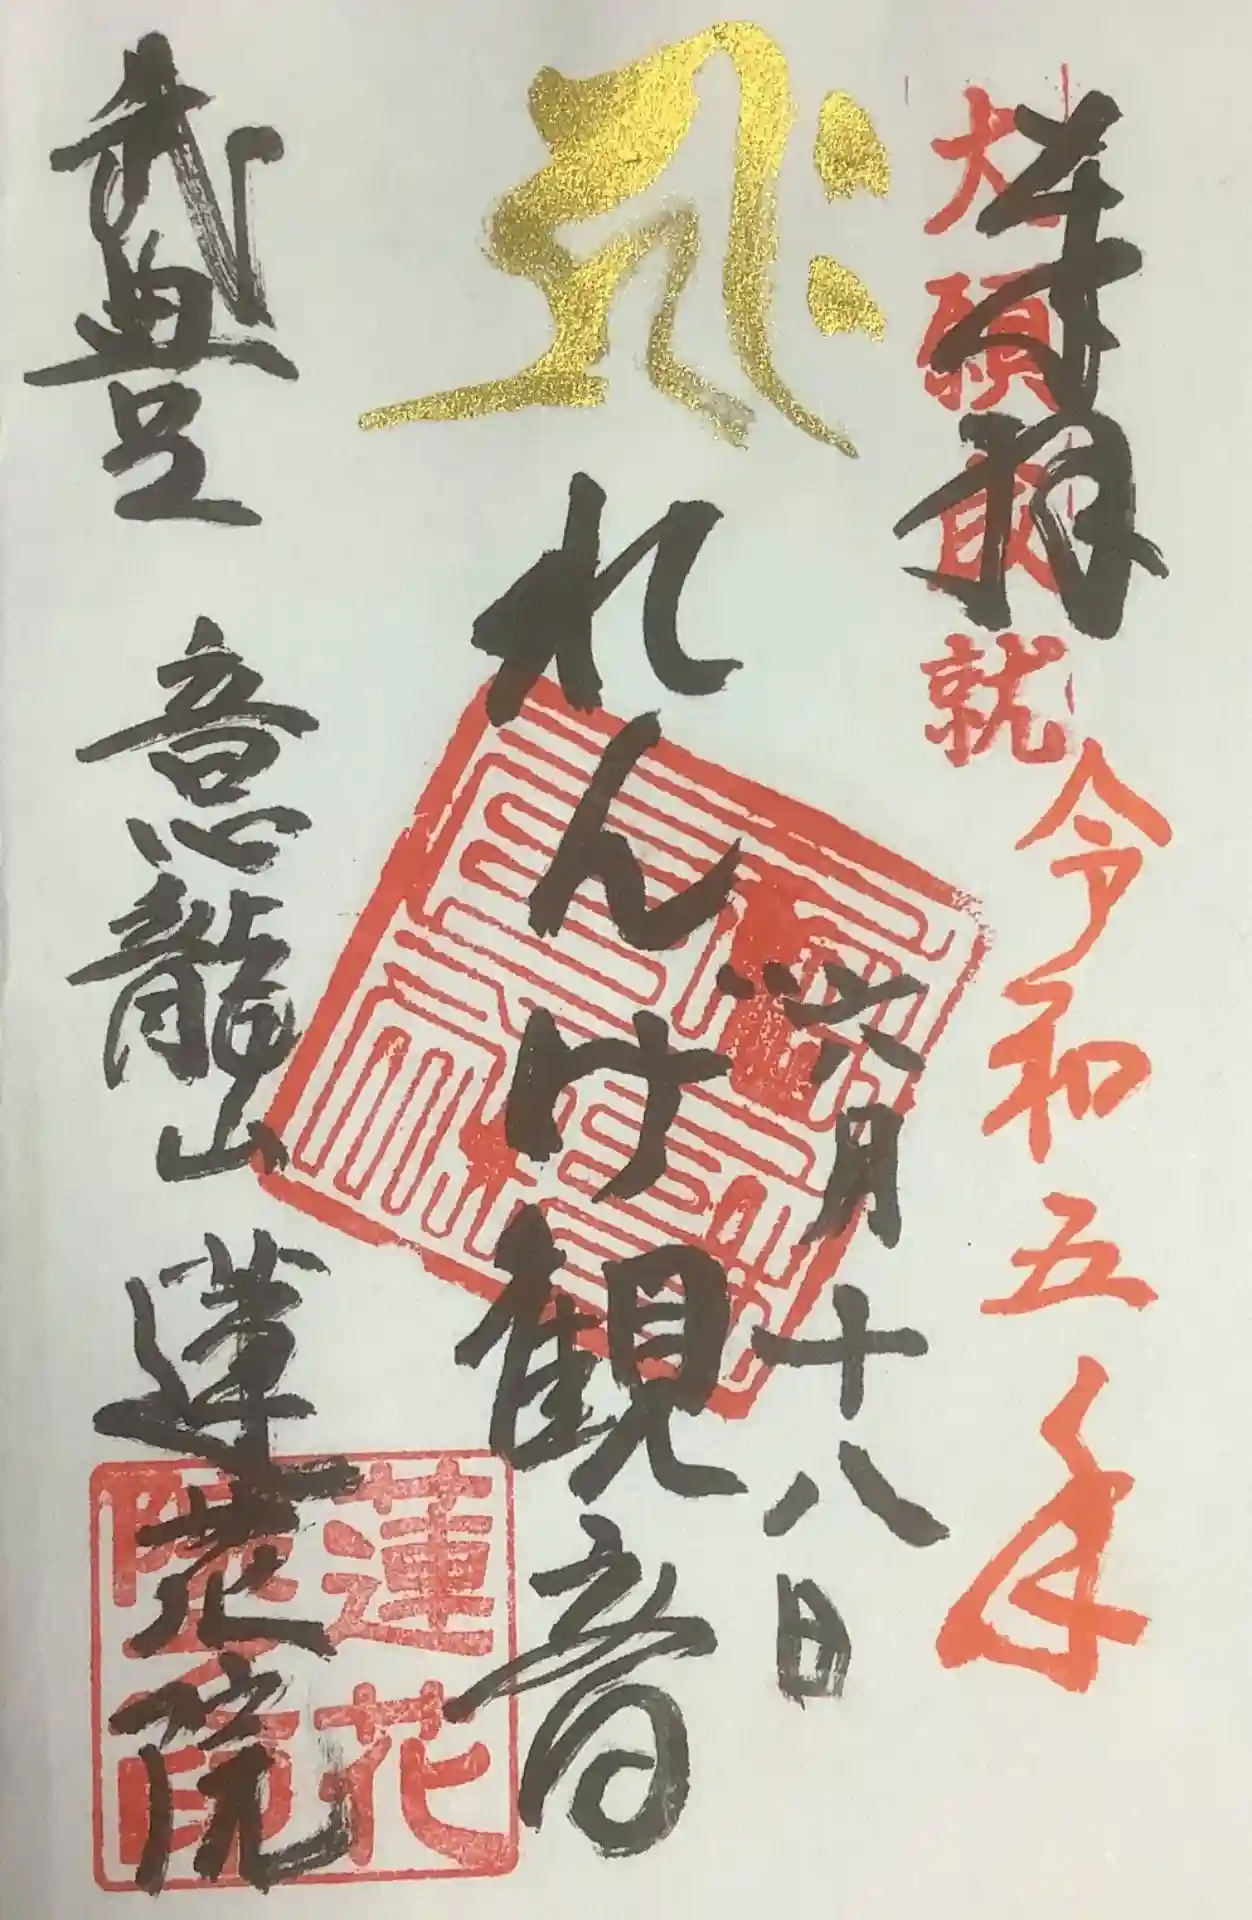 奉拝
大願成就
令和五年
六月十八日
れんけ観音
武豊 意龍山 蓮花院
蓮花
院印